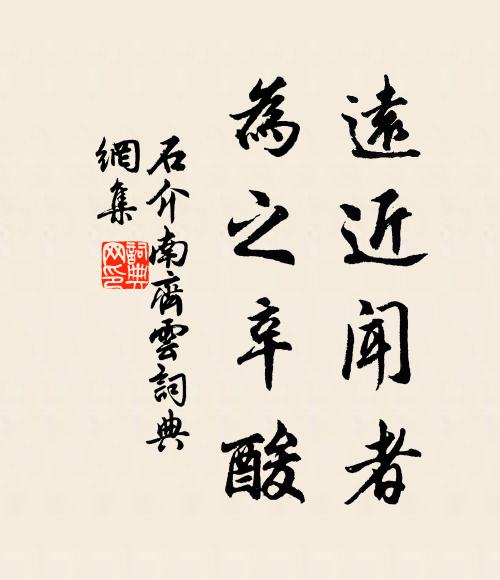 遠近聞者
為之辛酸
石介南齊雲詞典
網集
詞典
网印